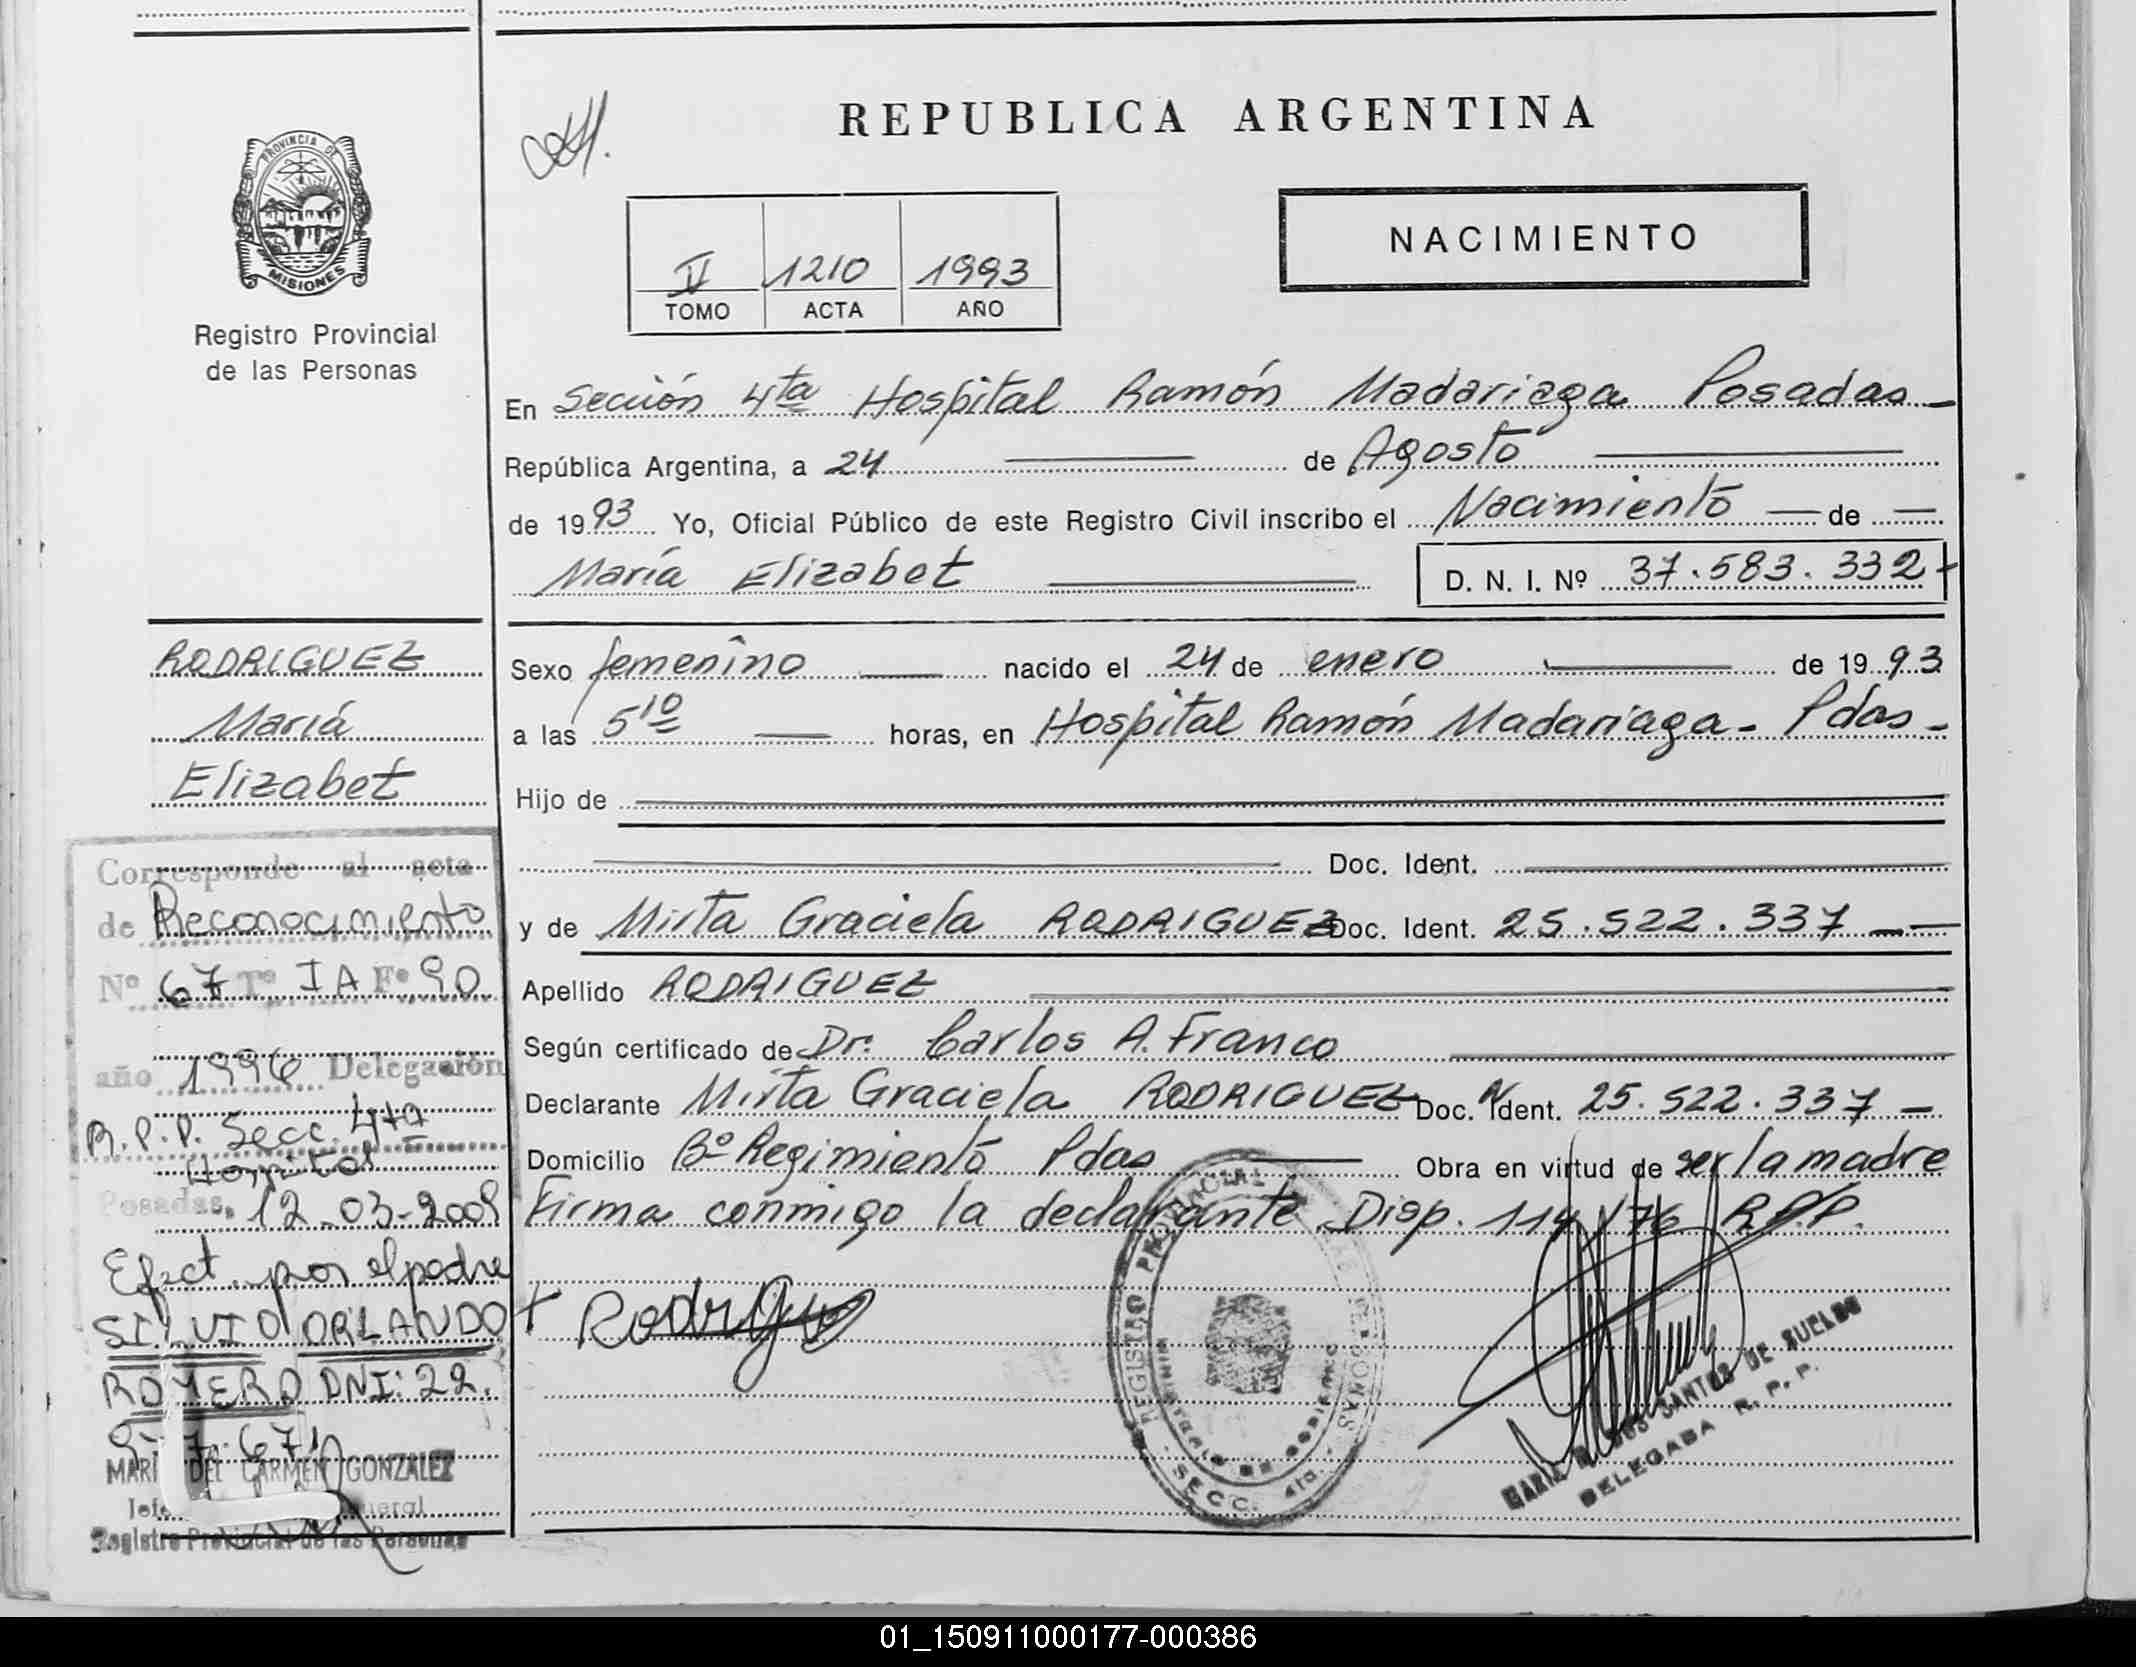 PROVINCIA DE
MISIONES
Registro Provincial
de las Personas
REPUBLICA ARGENTINA
NACIMIENTO
1210 1993
TOMO ACTA AÑO
En Sección 4ta Hospital Ramón Madariaga Posadas -
República Argentina, a 24 de Agosto
de 1993 Yo, Oficial Público de este Registro Civil inscribo el Nacimiento de
María Elizabet D. N. I. Nº 37.583.332-
RODRIGUEZ
María
Elizabet
Sexo femenino nacido el 24 de enero de 1993
a las 5 10 horas, en Hospital Ramón Madariaga - Pdas -
Hijo de
Doc. Ident.
y de Mirta Graciela RODRIGUEZ Doc. Ident. 25.522.337
Apellido RODRIGUEZ
Según certificado de Dr. Carlos A. Franco
Declarante Mirta Graciela RODRIGUEZ Doc. Ident. 25.522.337 -
Domicilio Bº Regimiento Pdas Obra en virtud de ser la madre
Firma conmigo la declarante. Disp. 114/76 R.P.P.
Corresponde al acta
de Reconocimiento
Nº 67 Tº IA Fº 90
año 1996 Delegación
R.P.P. Secc. 4ta
Hospital
Posadas, 12-03-2008
Efect. por el padre
SILVIO ORLANDO
ROMERO DNI: 22.
DEL CARMEN GONZALEZ
Registro Provincial de las Personas
Rodrígu
REGISTRO PROVINCIAL DE LAS PERSONAS
MINISTERIO DE GOBIERNO
SECC. 4ta.
SANTOS DE SUELDO
DELEGADA R. P. P.
01_150911000177-000386